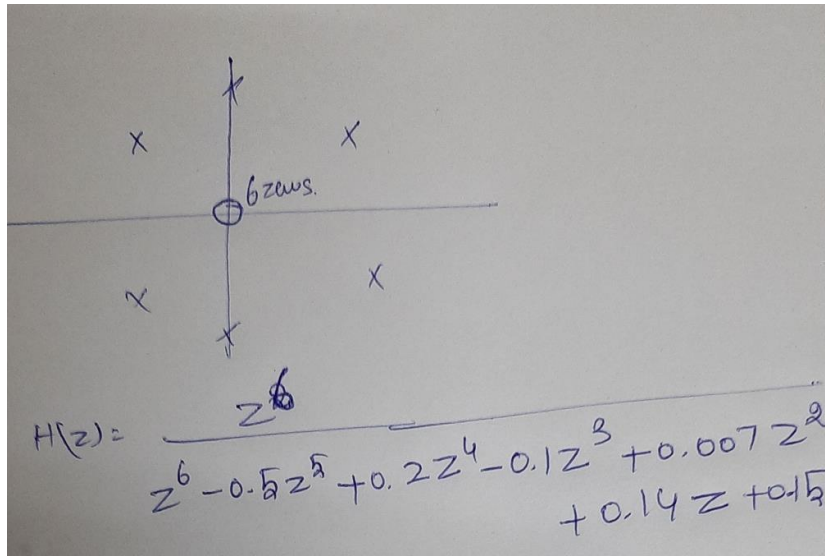 6 zeros.
H(z) = z^6 / (z^6 - 0.5z^5 + 0.2z^4 - 0.1z^3 + 0.007z^2
+ 0.14z + 0.15